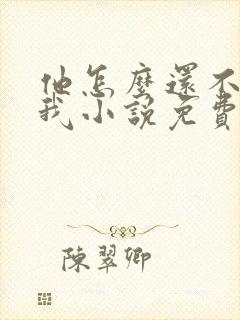 他怎麼還不
我小說免費
陳翠卿